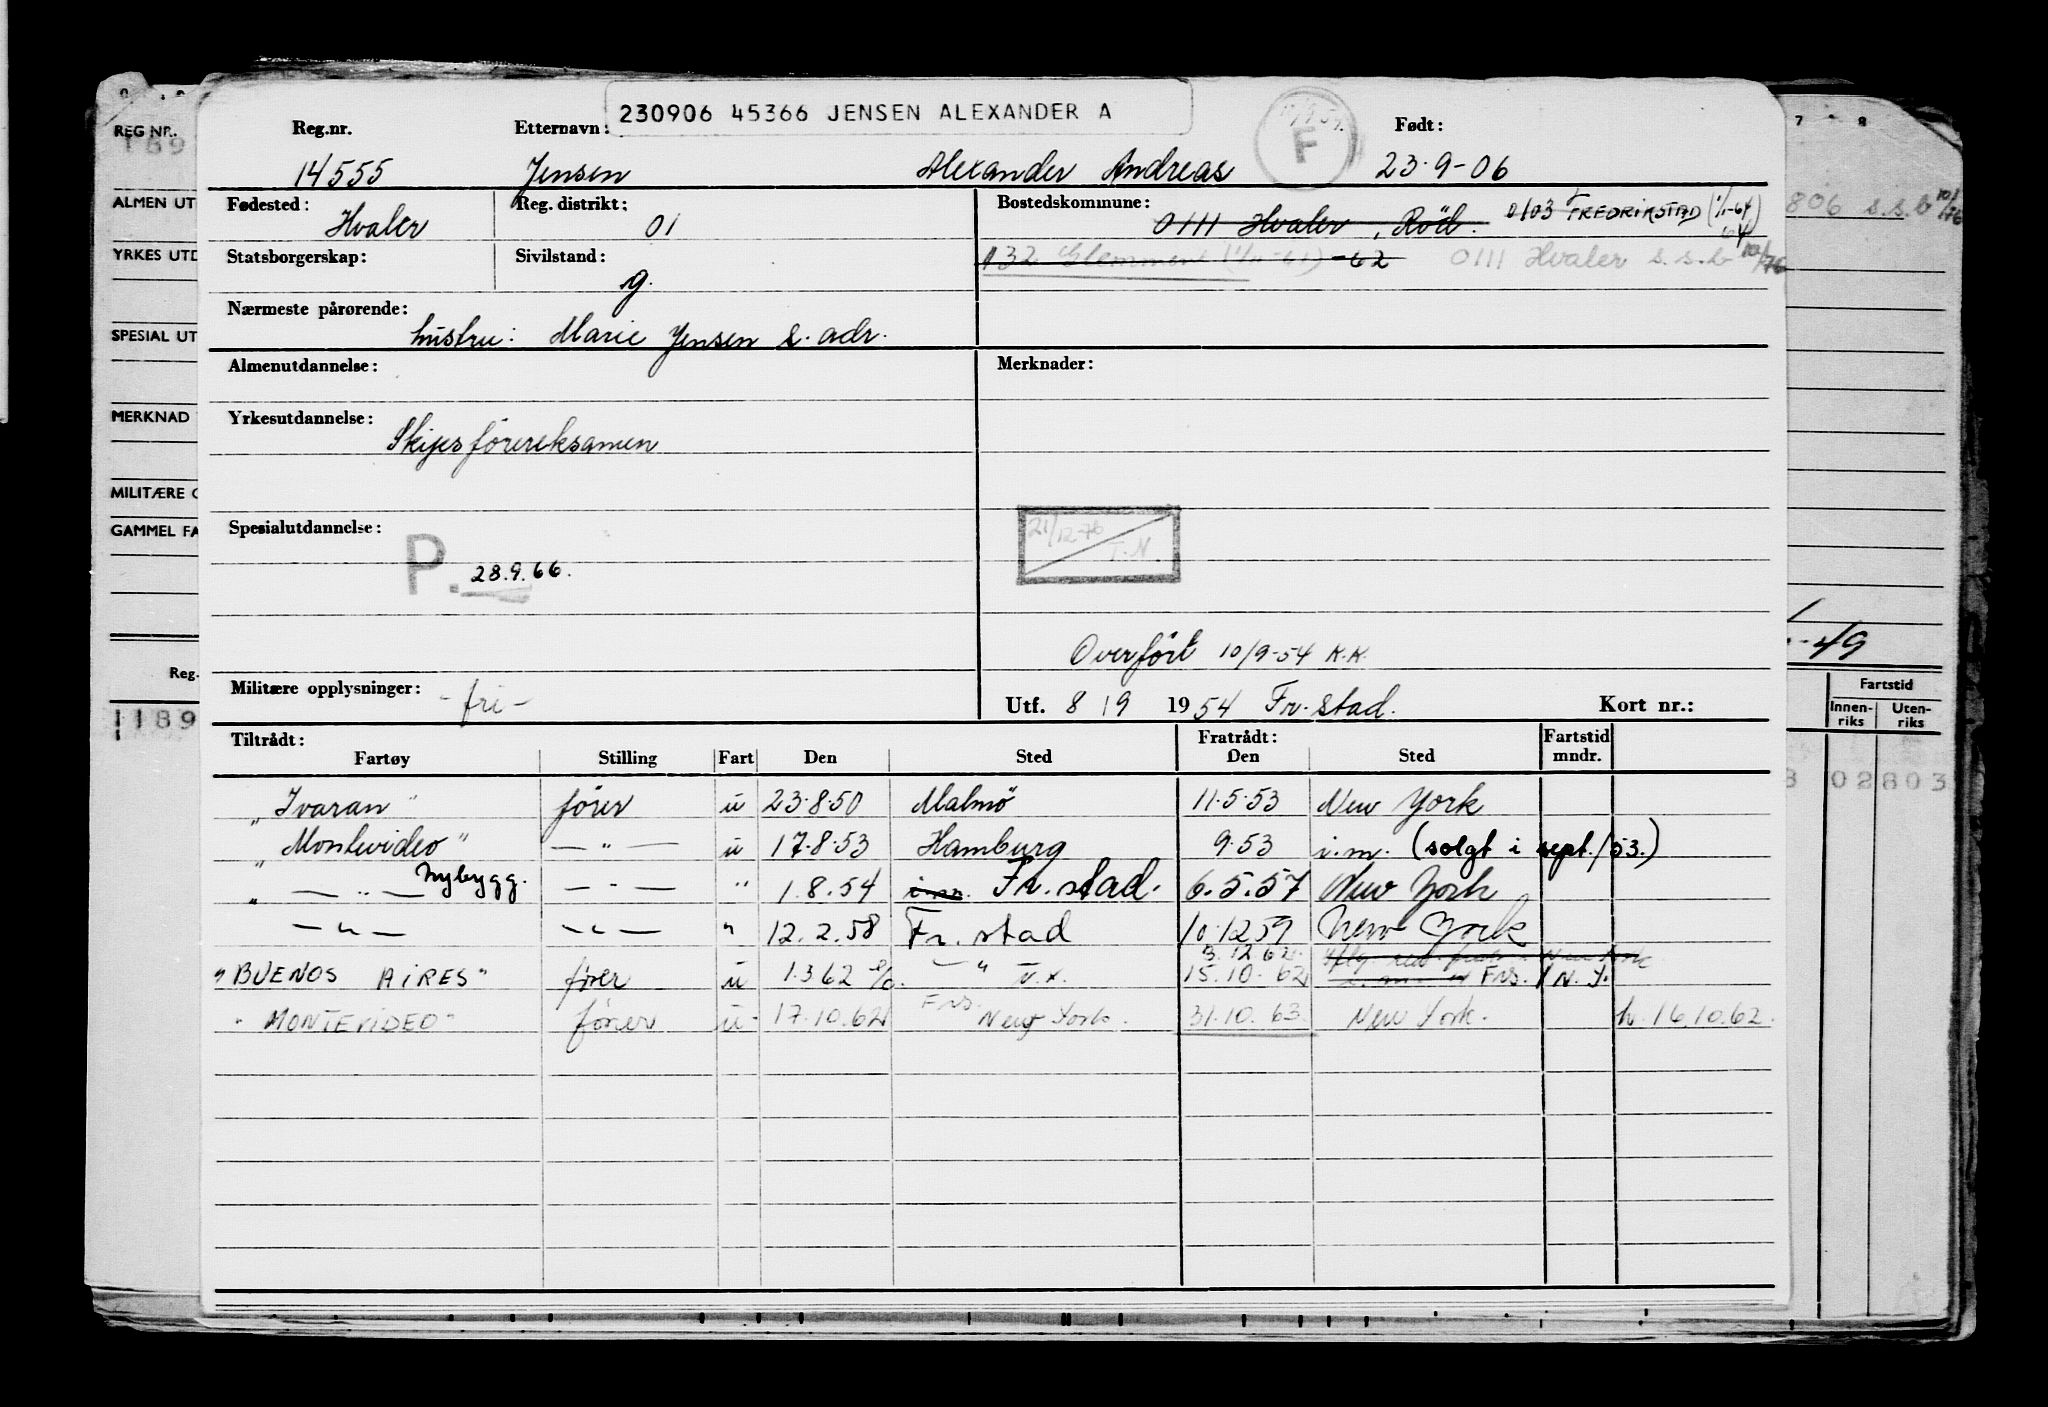 230906 45366 JENSEN ALEXANDER A
Reg.nr. Etternavn: Født:
14555 Jensen Alexander Andreas F 23.9-06
Fødested: Hvaler Reg. distrikt: 01 Bostedskommune: 0111 Hvaler, Röd. 0103 FREDRIKSTAD (1/1-64)
Statsborgerskap: Sivilstand: g. 132 Glemmen (1/11-61) -62 0111 Hvaler s.s.b 10/76
Nærmeste pårørende:
hustru: Marie Jensen s. adr.
Almenutdannelse: Merknader:
Yrkesutdannelse:
Skipsförereksamen
Spesialutdannelse: 21/12-76 T.N.
P. 28.9.66.
Overfört 10/9-54 K.K.
Militære opplysninger: -fri- Utf. 8/9 1954 Fr.stad. Kort nr.:
Tiltrådt: Fratrådt: Fartstid
Fartøy Stilling Fart Den Sted Den Sted mndr.
"Ivaran" förer u 23.8.50 Malmö 11.5.53 New York
"Montevideo" — " — u 17.8.53 Hamburg 9.53 i.m. (solgt i sept./53.)
" — " — Nybygg. — " — " 1.8.54 i.m. Fr.stad. 6.5.57 New York
— " — — " — " 12.2.58 Fr.stad 10.12.59 New York
3.12.62
"BUENOS AIRES" förer u 1.3.62 — " — 15.10.62 Frs. N.Y.
"MONTEVIDEO" förer u 17.10.62 Frs. New York. 31.10.63. New York. h. 16.10.62.
REG NR.
189
ALMEN UT
806 s.s.b 10/76
YRKES UTD
SPESIAL UT
MERKNAD
MILITÆRE O
GAMMEL FA
49
Reg.
Fartstid
Innen-riks Uten-riks
1189
02803
7 8